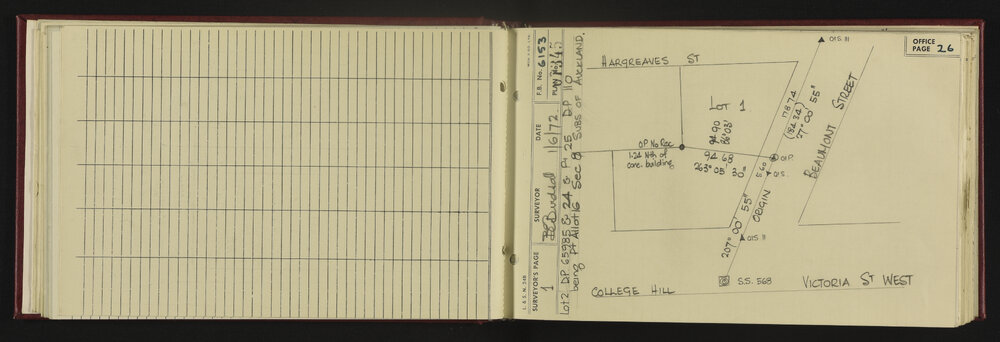 OFFICE
PAGE 26
L. & S. N. 24B
SURVEYOR'S PAGE
1
SURVEYOR
DATE
1/6/72.
F.B. No. 6153
Lot 2 DP 65985 & 24 & Pt 25 DP 110
being Pt Allot 16 Sec 8 SUBS OF AUCKLAND.
HARGREAVES ST
OIS III
LOT 1
94 90
86° 03'
178 74
(184 34)
27° 00' 55"
BEAUMONT STREET
OP No Rec
1·24 Nth of
conc. building
94 68
263° 05' 30"
OIP.
5.60
OIS.
ORIGIN
207° 00' 55"
OIS II
S.S. 568
COLLEGE HILL
VICTORIA ST WEST